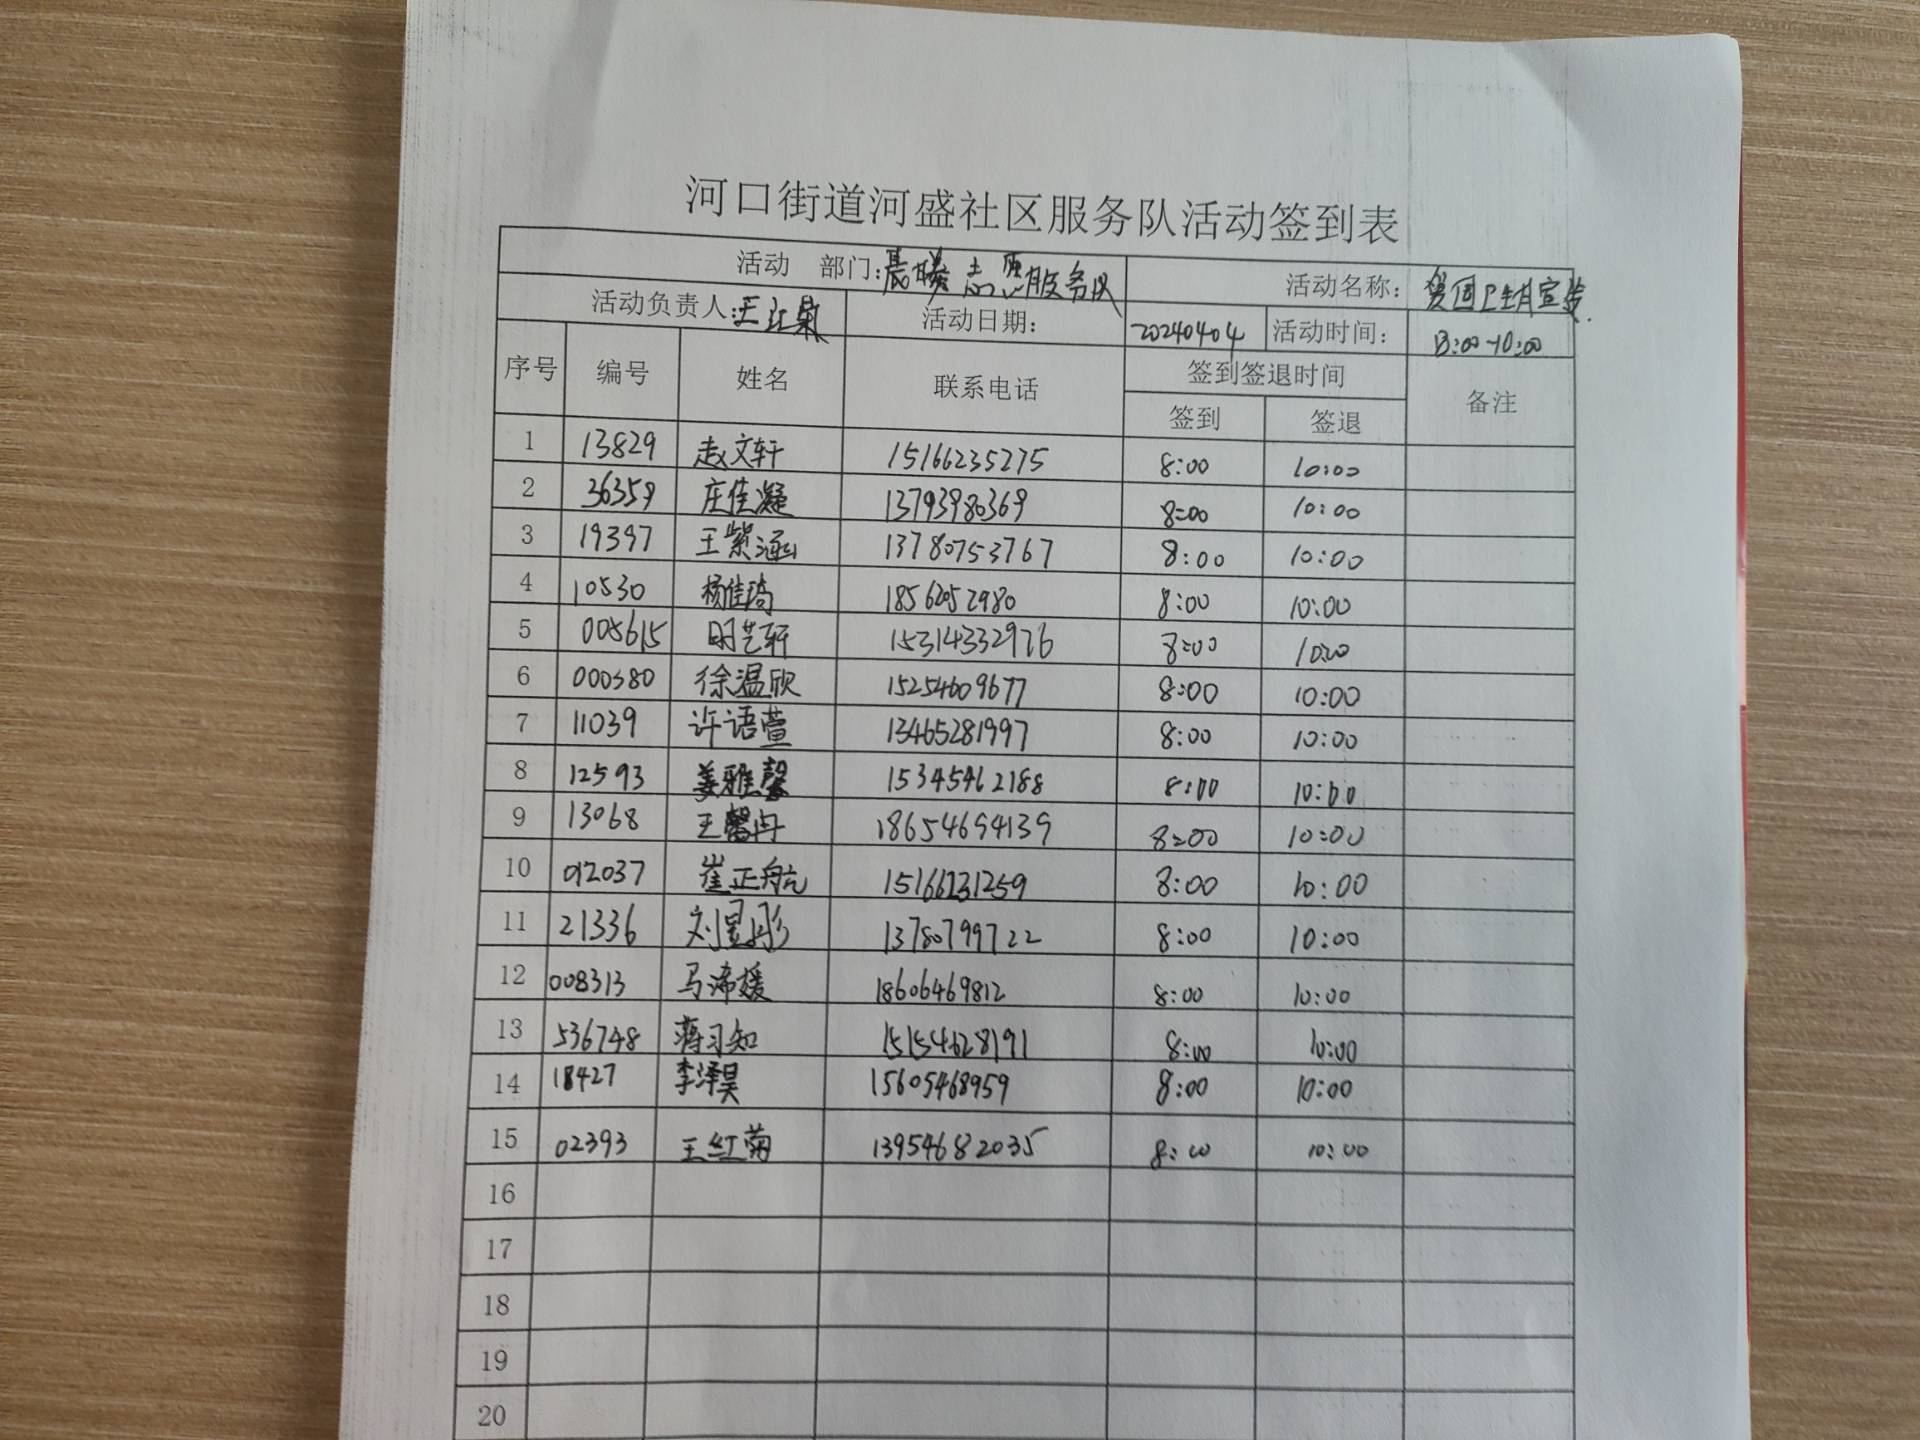 河口街道河盛社区服务队活动签到表
活动 部门:晨曦志愿服务队 活动名称: 爱国卫生月宣传
活动负责人:王红菊 活动日期: 20240404 活动时间: 8:00-10:00
序号 编号 姓名 联系电话 签到签退时间 备注
签到 签退
1 13829 赵文轩 15166235275 8:00 10:00
2 36359 庄佳凝 13793980369 8:00 10:00
3 19397 王紫涵 13780753767 8:00 10:00
4 10530 杨佳琦 18562052980 8:00 10:00
5 005615 时艺轩 15314332976 8:00 10:00
6 000380 徐温欣 15254609677 8:00 10:00
7 11039 许语萱 13465281997 8:00 10:00
8 12593 姜雅馨 15345462188 8:00 10:00
9 13068 王馨冉 18654694139 8:00 10:00
10 012037 崔正航 15166231259 8:00 10:00
11 21336 刘昱彤 13780799722 8:00 10:00
12 008313 马沛媛 18606469812 8:00 10:00
13 536748 蒋习知 15154628191 8:00 10:00
14 18427 李泽昊 15605468959 8:00 10:00
15 02393 王红菊 13954682035 8:00 10:00
16
17
18
19
20